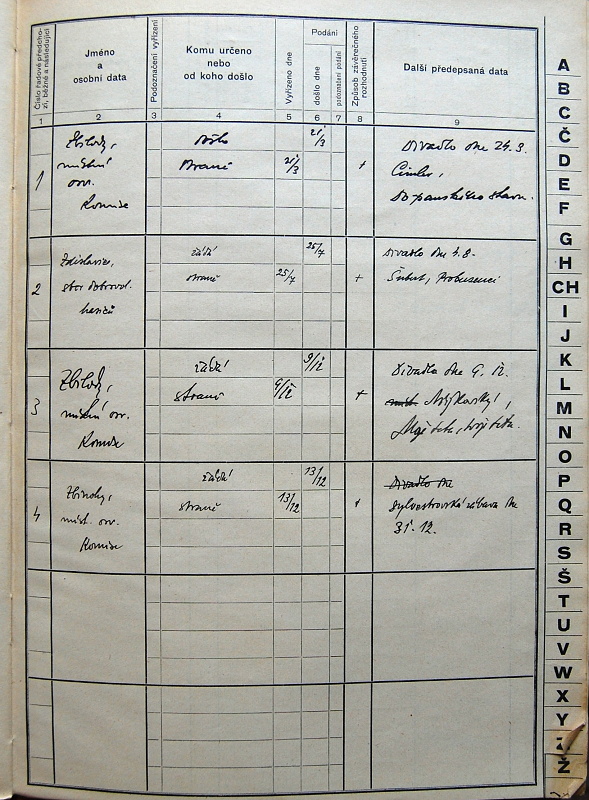 Číslo řadové předcho-
zí, běžné a následující
Jméno
a
osobní data
Podoznačení vyřízení
Komu určeno
nebo
od koho došlo
Vyřízeno dne
Podání
došlo dne
poznačení podání
Způsob závěrečného
rozhodnutí
Další předepsaná data
1 2 3 4 5 6 7 8 9
1
místní
osv.
Komise
došlo
straně
21/3
21/3
+
Divadlo dne 24.3.
2
Zdislavice,
sbor dobrovol.
hasičů
žádá
straně
25/7
25/7
+
Divadlo dne 4.8.
3
místní osv.
Komise
žádá
straně
9/12
9/12
+
Divadlo dne 9. 12.
Moje teta, tvoje teta.
4
míst. osv.
Komise
žádá
straně
13/12
13/12
+
Divadlo dne
sylvestrovská zábava dne
31. 12.
A
B
C
Č
D
E
F
G
H
CH
I
J
K
L
M
N
O
P
Q
R
S
Š
T
U
V
W
X
Y
Z
Ž